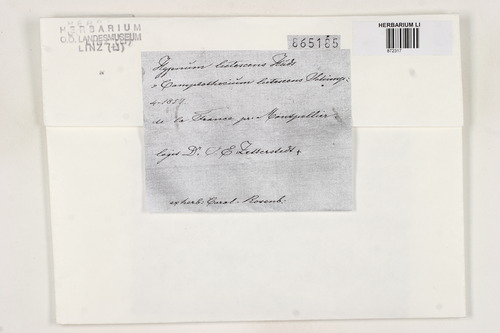 HERBARIUM
O.Ö. LANDESMUSEUM
LINZ (LI)
865185
HERBARIUM LI
Hypnum lutescens Huds
= Camptothecium lutescens Schimp:
4-1857
de la France pr. Montpellier
legit Dr. J E Zetterstedt.
ex herb: Carol. Rosenb.